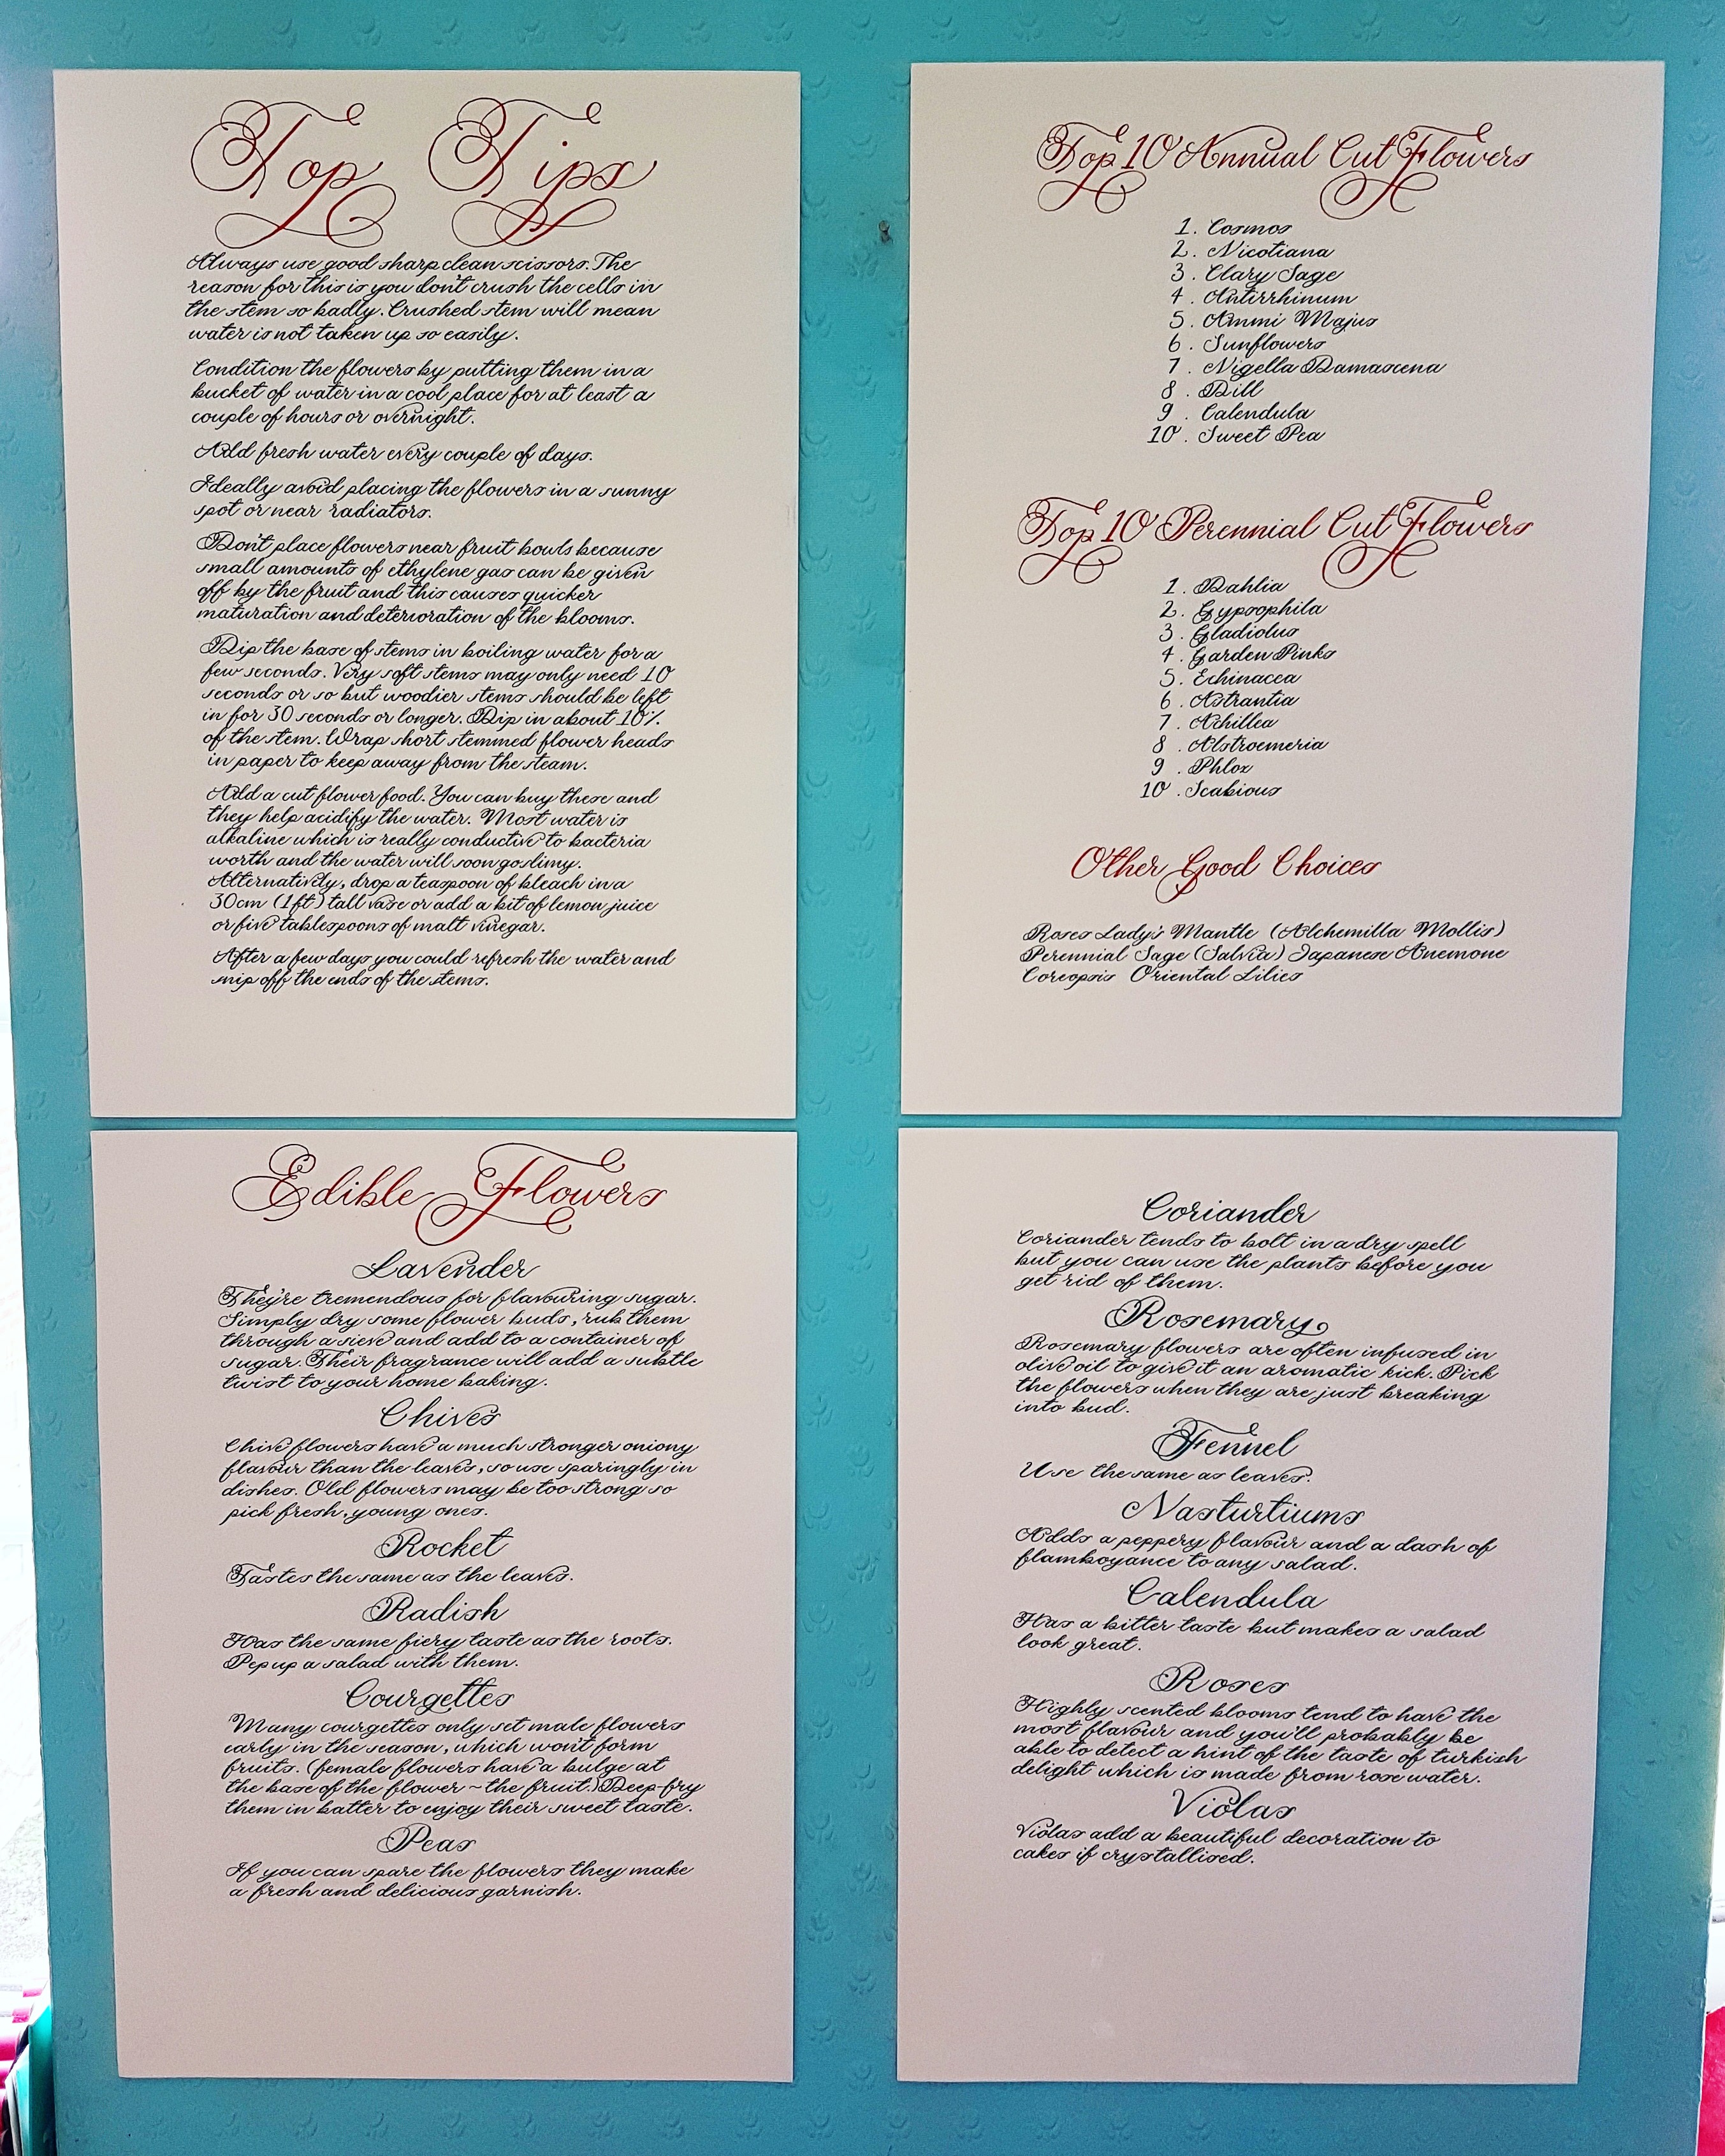 Top Tips
Always use good sharp clean scissors. The
reason for this is you don't crush the cells in
the stem so badly. Crushed stem will mean
water is not taken up so easily.
Condition the flowers by putting them in a
bucket of water in a cool place for at least a
couple of hours or overnight.
Add fresh water every couple of days.
Ideally avoid placing the flowers in a sunny
spot or near radiators.
Don't place flowers near fruit bowls because
small amounts of ethylene gas can be given
off by the fruit and this causes quicker
maturation and deterioration of the blooms.
Dip the base of stems in boiling water for a
few seconds. Very soft stems may only need 10
seconds or so but woodier stems should be left
in for 30 seconds or longer. Dip in about 10%
of the stem. Wrap short stemmed flower heads
in paper to keep away from the steam.
Add a cut flower food. You can buy these and
they help acidify the water. Most water is
alkaline which is really conductive to bacteria
worth and the water will soon go slimy.
Alternatively, drop a teaspoon of bleach in a
30cm (1ft) tall vase or add a bit of lemon juice
or five tablespoons of malt vinegar.
After a few days you could refresh the water and
snip off the ends of the stems.
Top 10 Annual Cut Flowers
1. Cosmos
2. Nicotiana
3. Clary Sage
4. Antirrhinum
5. Ammi Majus
6. Sunflowers
7. Nigella Damascena
8. Dill
9. Calendula
10. Sweet Pea
Top 10 Perennial Cut Flowers
1. Dahlia
2. Gypsophila
3. Gladiolus
4. Garden Pinks
5. Echinacea
6. Astrantia
7. Achillea
8. Alstroemeria
9. Phlox
10. Scabious
Other Good Choices
Roses Lady's Mantle (Alchemilla Mollis)
Perennial Sage (Salvia) Japanese Anemone
Coreopsis Oriental Lilies
Edible Flowers
Lavender
They're tremendous for flavouring sugar.
Simply dry some flower buds, rub them
through a sieve and add to a container of
sugar. Their fragrance will add a subtle
twist to your home baking.
Chives
Chive flowers have a much stronger oniony
flavour than the leaves, so use sparingly in
dishes. Old flowers may be too strong so
pick fresh, young ones.
Rocket
Tastes the same as the leaves.
Radish
Has the same fiery taste as the roots.
Pep up a salad with them.
Courgettes
Many courgettes only set male flowers
early in the season, which won't form
fruits. (female flowers have a bulge at
the base of the flower ~ the fruit.) Deep-fry
them in batter to enjoy their sweet taste.
Peas
If you can spare the flowers they make
a fresh and delicious garnish.
Coriander
Coriander tends to bolt in a dry spell
but you can use the plants before you
get rid of them.
Rosemary
Rosemary flowers are often infused in
olive oil to give it an aromatic kick. Pick
the flowers when they are just breaking
into bud.
Fennel
Use the same as leaves.
Nasturtiums
Adds a peppery flavour and a dash of
flamboyance to any salad.
Calendula
Has a bitter taste but makes a salad
look great.
Roses
Highly scented blooms tend to have the
most flavour and you'll probably be
able to detect a hint of the taste of turkish
delight which is made from rose water.
Violas
Violas add a beautiful decoration to
cakes if crystallised.